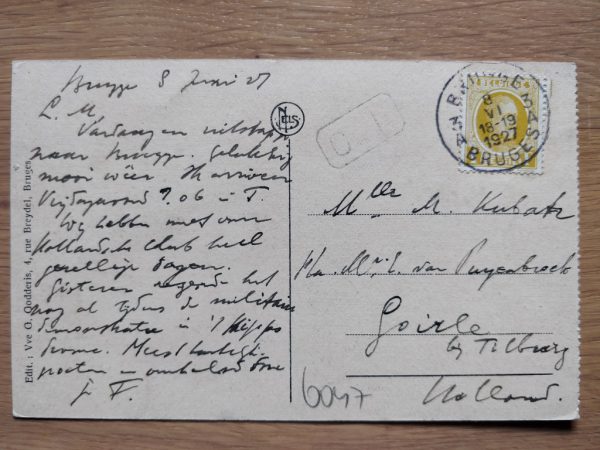 Brugge 8 Juni 27
L. M.
Vandaag een uitstapje
naar Brugge. Gelukkig
mooi weer.
Vrijdagavond 9.06 in T.
Wij hebben met onze
Hollandsche club heel
gezellige dagen.
Gisteren regende het
nog al tijdens de militaire
demonstratie in 't
Meest hartelijke
groeten en omhelsd door
F.
Edit.: Vve G. Qodderis, 4, rue Breydel, Bruges
NELS
C 1
BRUGGE 3A
8
VI
18-19
1927
3A BRUGES
Mlle M. Kubatz
p/a Mr. E. van Puyenbroek
Goirle
bij Tilburg
Holland.
6047